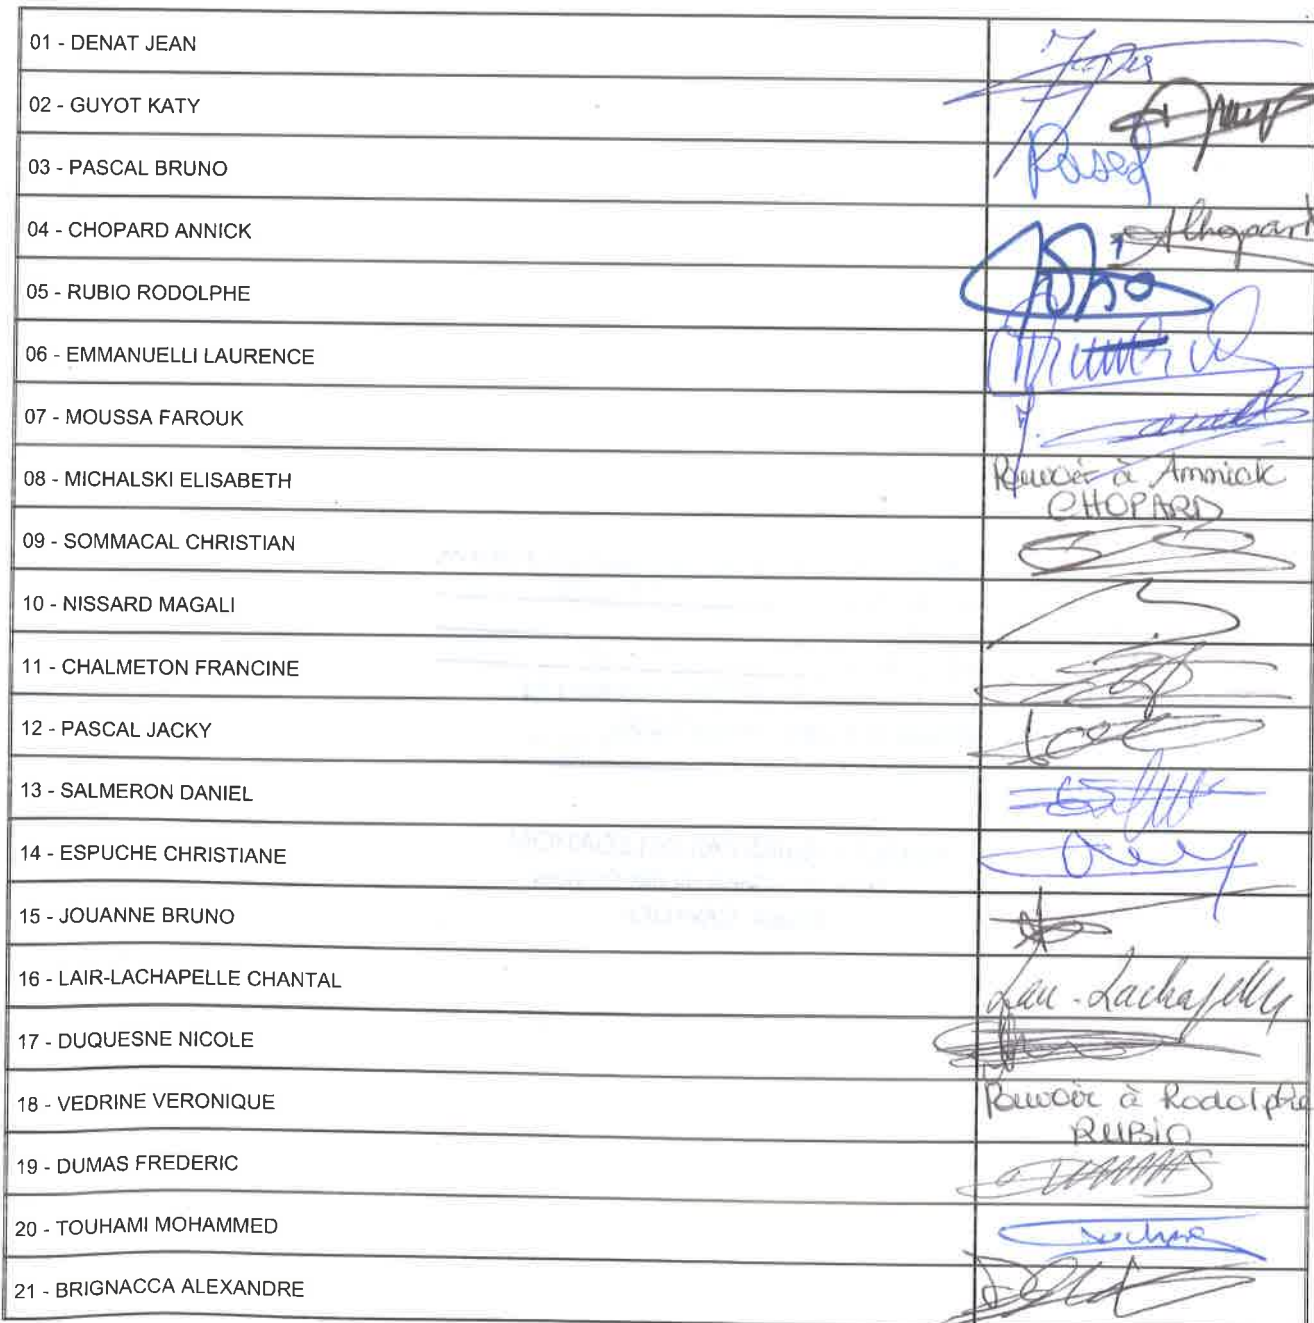 01 - DENAT JEAN
02 - GUYOT KATY
03 - PASCAL BRUNO
Pascal
04 - CHOPARD ANNICK
AChopart
05 - RUBIO RODOLPHE
06 - EMMANUELLI LAURENCE
07 - MOUSSA FAROUK
08 - MICHALSKI ELISABETH
Pouvoir à Annick
CHOPARD
09 - SOMMACAL CHRISTIAN
10 - NISSARD MAGALI
11 - CHALMETON FRANCINE
12 - PASCAL JACKY
13 - SALMERON DANIEL
14 - ESPUCHE CHRISTIANE
15 - JOUANNE BRUNO
16 - LAIR-LACHAPELLE CHANTAL
Lair-Lachapelle
17 - DUQUESNE NICOLE
18 - VEDRINE VERONIQUE
Pouvoir à Rodolphe
RUBIO
19 - DUMAS FREDERIC
20 - TOUHAMI MOHAMMED
21 - BRIGNACCA ALEXANDRE